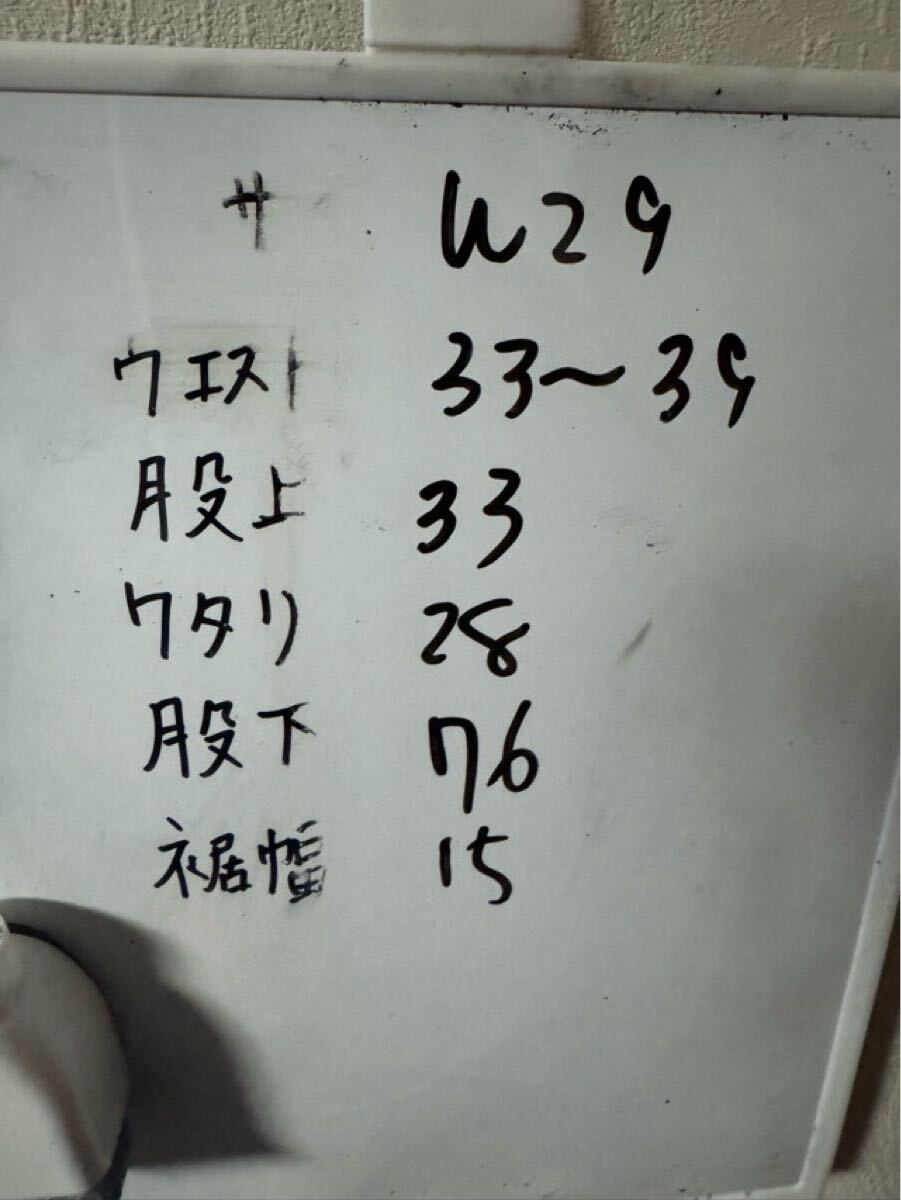 サ W29
ウエスト 33～39
股上 33
ワタリ 28
股下 76
裾幅 15